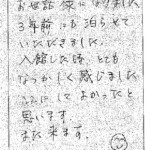 お世話様になりました
3年前に泊らせて
いただきました。
入館した時、とても
なつかしく感じました
ここにしてよかったと
思います。
また来ます。